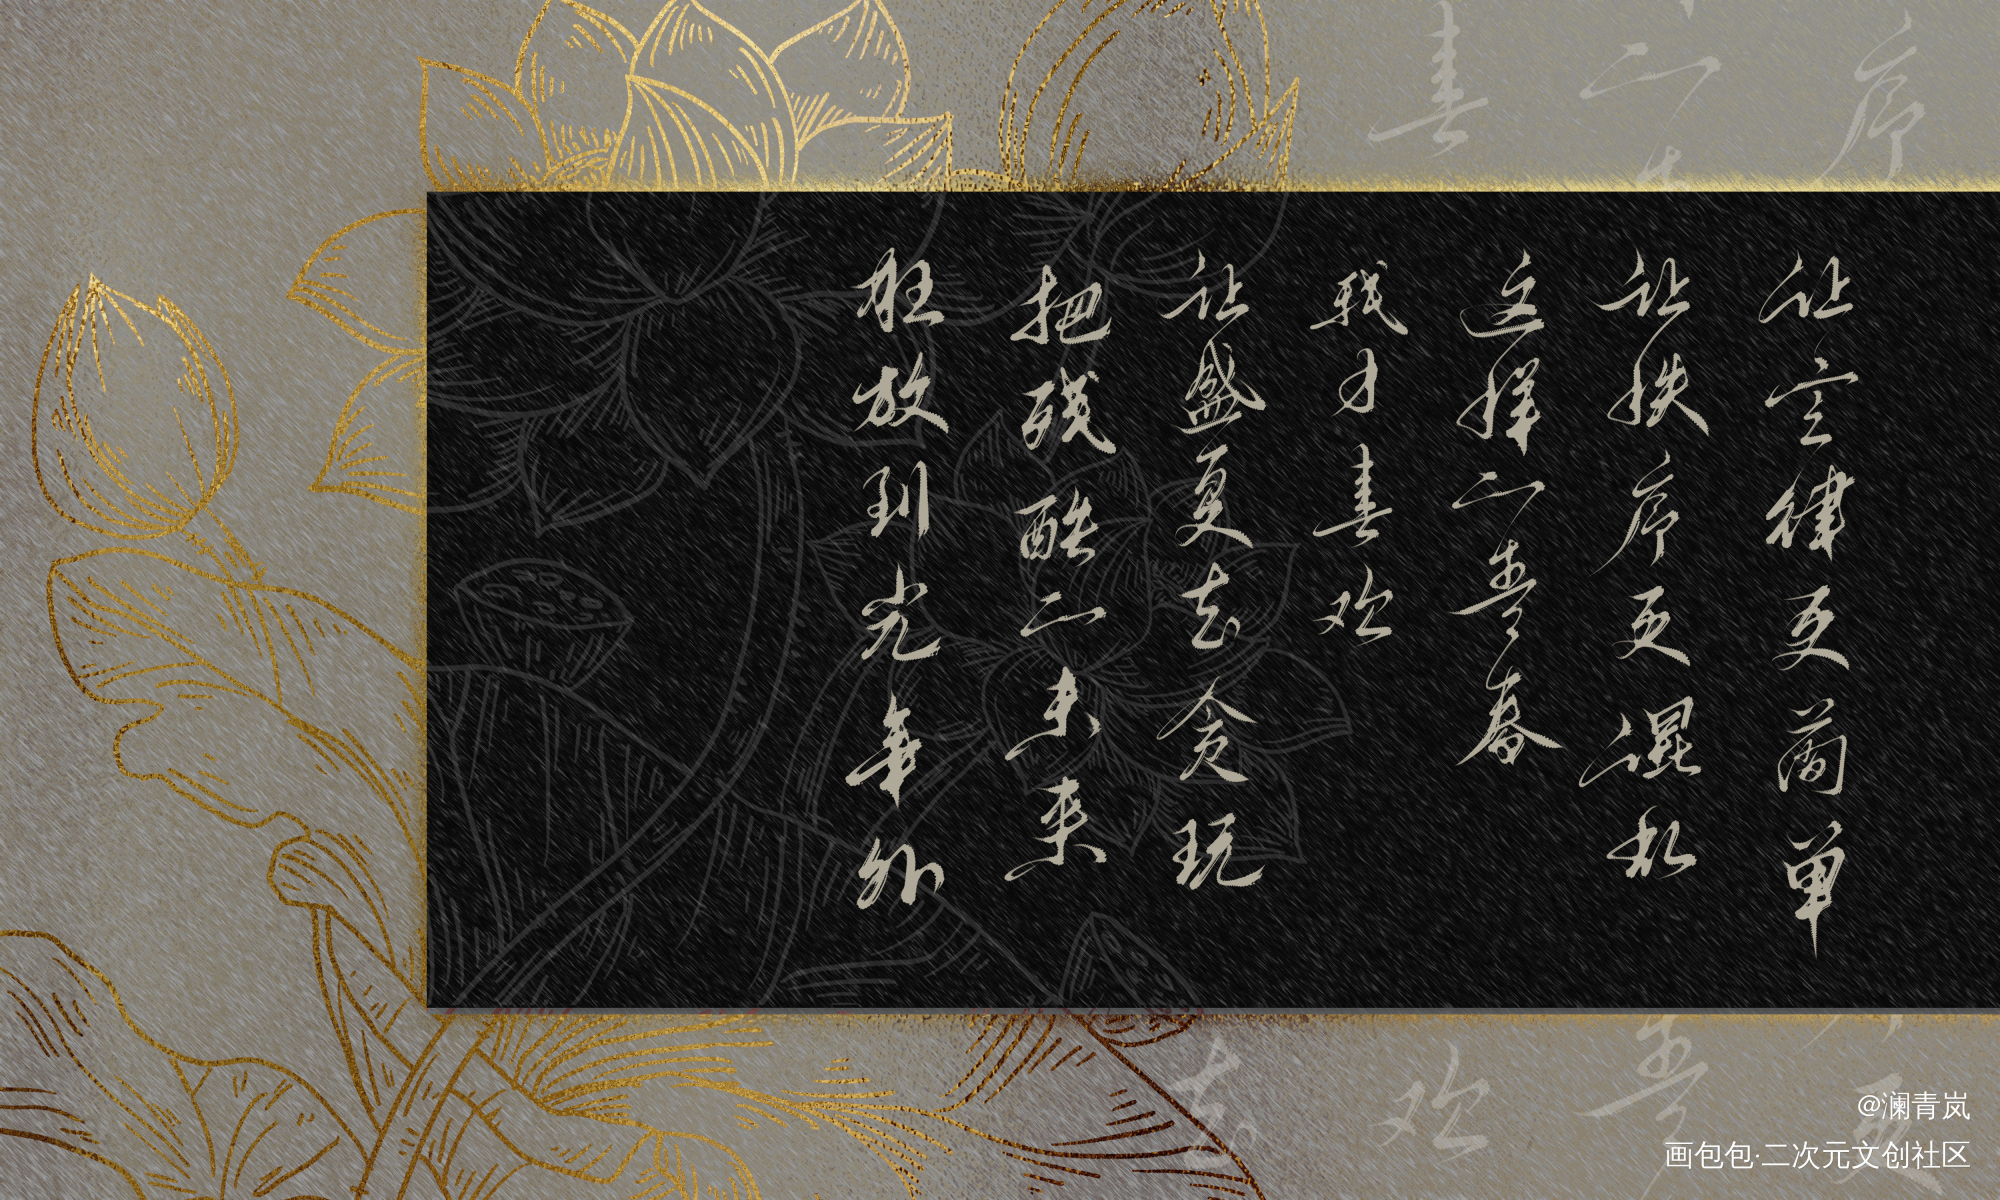 让定律更简单
让秩序更混乱
这样的青春
我才喜欢
让盛夏去贪玩
把残酷的未来
狂放到光年外
@澜青岚
画包包·二次元文创社区